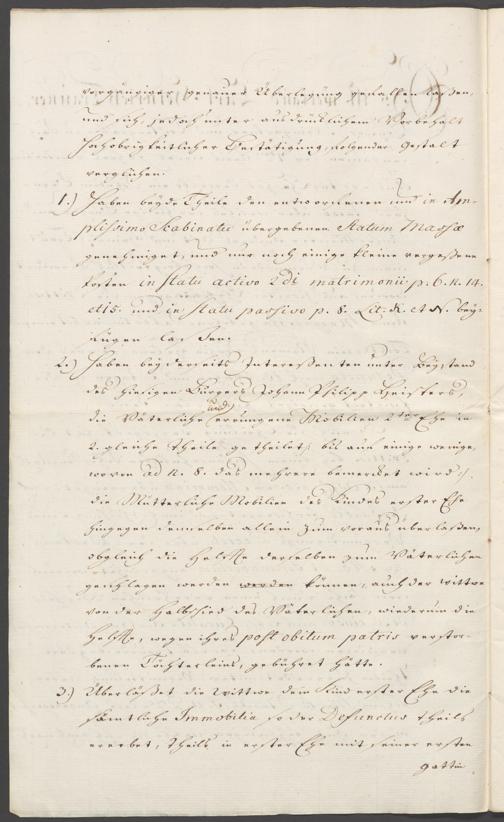 vorgängiger genauer Überlegung gefallen lassen,
und sich, jedoch unter ausdrücklichem Vorbehalt
hochobrigkeitlicher Bestätigung, folgender Gestalt
verglichen:
1.) Haben beyde Theile den entworfenen und in Am-
plissimo Scabinatu übergebenen Statum Massæ
genehmiget, und nur noch einige kleine vergessene
Posten in statu activo 2di matrimonii p. 6. N. 14.
et 15. und in statu passivo p. 8. Lit. et N. bey-
fügen lassen.
2.) Haben beyderseits Interessenten unter Beystand
des hiesigen Burgers Johann Philipp
die Väterliche und errungene Mobilien 2ter Ehe in
2. gleiche Theile getheilet /: bis auf einige wenige,
wovon ad N. 8. das mehrere bemerket wird :/.
die Mütterliche Mobilien des Kindes erster Ehe
hingegen demselben allein zum voraus überlassen,
obgleich die Helfte derselben zum Väterlichen
geschlagen werden werden können, auch der Wittwe
von der Halbschied des Väterlichen, wiederum die
Helfte, wegen ihres post obitum patris verstor-
benen Töchterleins, gebühret hätte.
3.) Überlässet die Wittwe dem Kind erster Ehe die
sämtliche Immobilia so der Defunctus theils
ererbet, theils in erster Ehe mit seiner ersten
Gattin